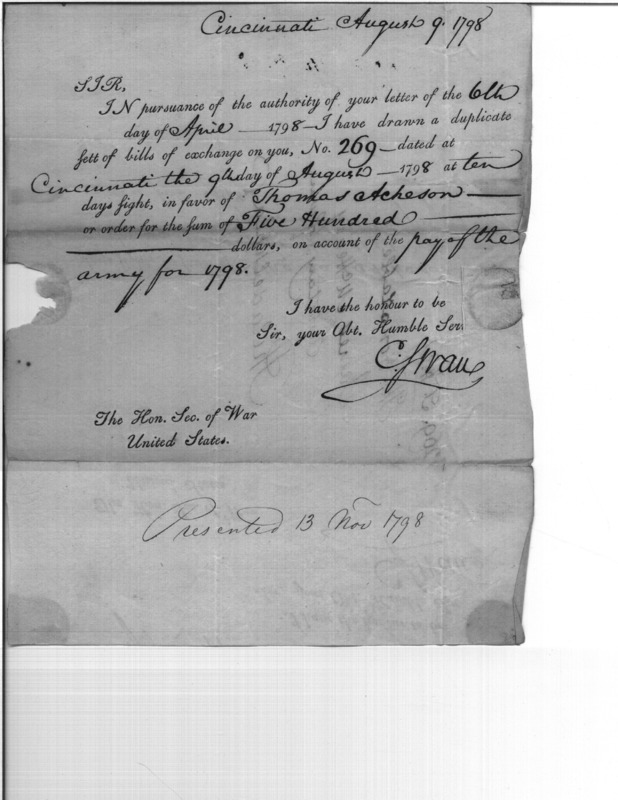 Cincinnati August 9. 1798
SIR,
IN pursuance of the authority of your letter of the 6th
day of April — 1798 — I have drawn a duplicate
sett of bills of exchange on you, No. 269 — dated at
Cincinnati the 9th day of August — 1798 at ten
days sight, in favor of Thomas Acheson —
or order for the sum of Five Hundred —
— dollars, on account of the pay of the
army for 1798.
I have the honour to be
Sir, your Obt. Humble Ser.
C. Swan
The Hon. Sec. of War
United States.
Presented 13 Nov 1798